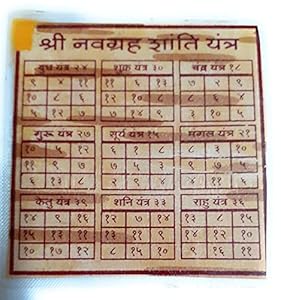 श्री नवग्रह शांति यंत्र
बुध यंत्र २४ शुक्र यंत्र ३० चंद्र यंत्र १८
९ ४ ११ ११ ६ १३ ७ २ ९
१० ८ ६ १२ १० ८ ८ ६ ४
५ १२ ७ ७ १४ ९ ३ १० ५
गुरू यंत्र २७ सूर्य यंत्र १५ मंगल यंत्र २१
१० ५ १२ ६ १ ८ ८ ३ १०
११ ९ ७ ७ ५ ३ ९ ७ ५
६ १३ ८ २ ९ ४ ४ ११ ६
केतु यंत्र ३९ शनि यंत्र ३३ राहु यंत्र ३६
१४ ९ १६ १२ ७ १४ १३ ८ १५
१५ १३ ११ १३ ११ ९ १४ १२ १०
१० १७ १२ ८ १५ १० ९ १६ ११